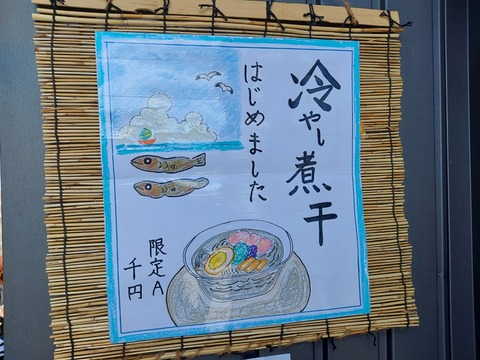 冷やし煮干
はじめました
限定A
千円